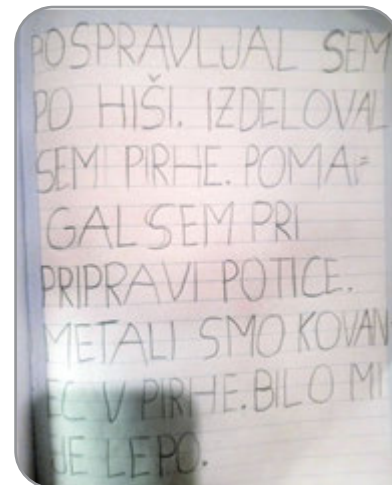 POSPRAVLJAL SEM
PO HIŠI. IZDELOVAL
SEM PIRHE. POMA=
GAL SEM PRI
PRIPRAVI POTICE.
METALI SMO KOVAN
EC V PIRHE. BILO MI
JE LEPO.